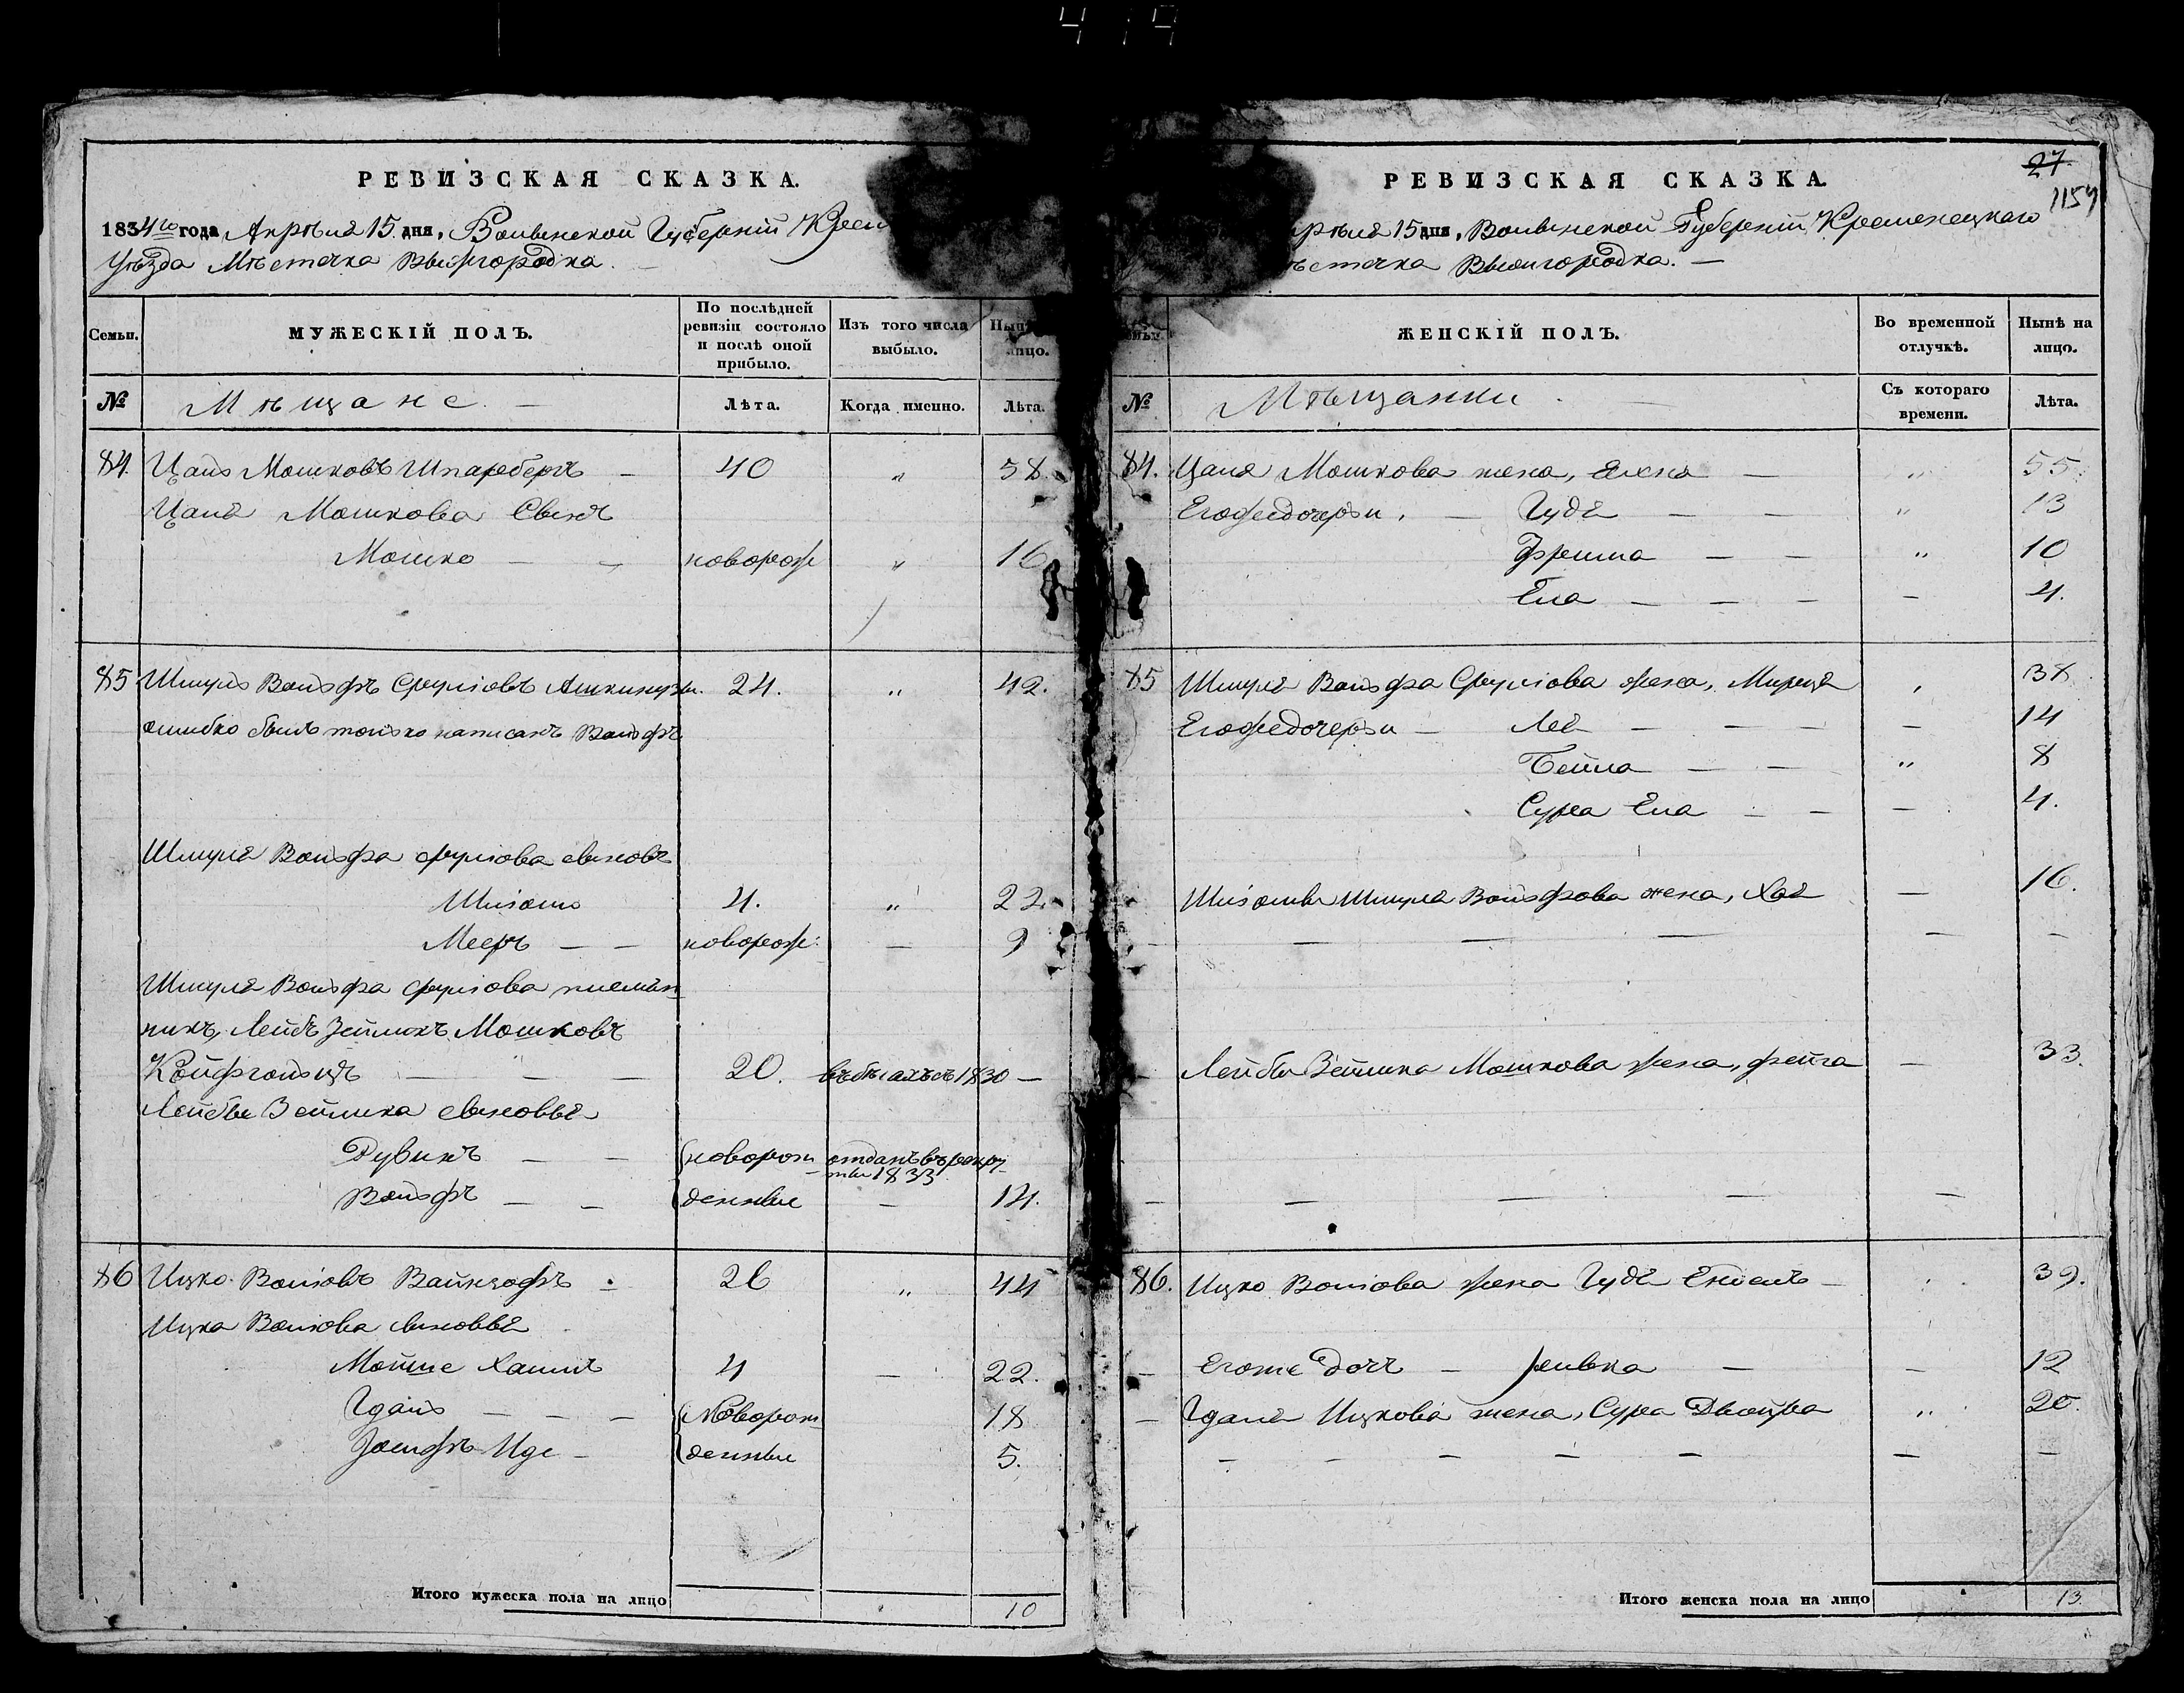 РЕВИЗСКАЯ СКАЗКА.
1834го года Апрѣля 15. дня. Волынской Губерніи
Уѣзда Мѣстечка Вышгородка.
Семьи.
МУЖЕСКІЙ ПОЛЪ.
По послѣдней ревизіи состояло и послѣ оной прибыло.
Изъ того числа выбыло.
лицо.
№
Мѣщане.
Лѣта.
Когда именно.
Лѣта.
84. Цаль Мошковъ 40 " 58.
Цаля Мошкова Сынъ
Мошко новорож " 16
85 Шмуль Вольфъ Сруліовъ 24. " 42.
ошибко былъ только написанъ Вольфъ
Шмуля Вольфа Сруліова сыновъ
Шліома 4. " 22.
Мееръ новорож: — 9
Шмуля Вольфа Сруліова племян
никъ, Лейбъ Зейликъ Мошковъ
20. въ бѣгахъ съ 1830 —
Лейбы Зейлика сыновья
Дувидъ новорож отданъ въ рекру
ты 1833
Вольфъ денные — 14.
86 Ицко Волховъ 26 " 44
Ицка Волхова сыновья
Мойше Хаимъ 4 — 22.
Гдаль Новорож 18
Іосифъ Иде денные 5.
Итого мужеска пола на лицо 10
27.
1157
РЕВИЗСКАЯ СКАЗКА
15 дня. Волынской Губерніи Кременецкаго
Вышгородка.
ЖЕНСКІЙ ПОЛЪ.
Во временной отлучкѣ.
Нынѣ на лицо.
№
Мѣщанки
Съ котораго времени.
Лѣта.
84. Цаля Мошкова жена, Елена " 55.
Егоже дочери. Гудя " 13
Фрейма " 10
Ела — 4.
85 Шмуля Вольфа Сруліова жена, Мирля 38
Егоже дочери Лея — 14
Бейла " 8
Сура Ела — 4.
Шліомы Шмуля Вольфова жена, Хая — 16.
Лейбы Зейлика Мошкова жена, Фейга — 33.
86. Ицко Волхова жена Гудя 39.
Егоже Дочь — Ривка — 12
Гдаля Ицкова жена, Сура Двойра " 20.
Итого женска пола на лицо 13.